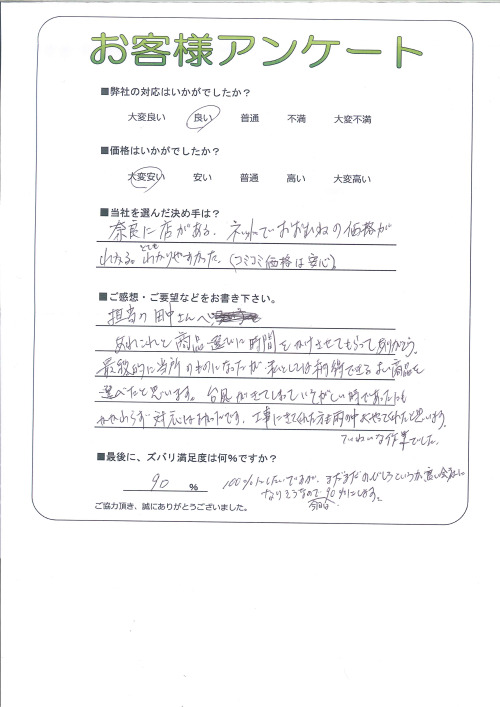 お客様アンケート
■弊社の対応はいかがでしたか？
大変良い 良い 普通 不満 大変不満
■価格はいかがでしたか？
大変安い 安い 普通 高い 大変高い
■当社を選んだ決め手は？
奈良に店がある。ネットでおおむねの価格が
とても
わかりやすかった。(コミコミ価格は安心)
■ご感想・ご要望などをお書き下さい。
担当の田中さんへ
あれこれと商品選びに時間をかけさせてもらってありがとう。
最終的に当所のものになったが私としては納得できるよい商品を
選べたと思います。台風がきてしまっていそがしい時であったにも
かかわらず対応は です。工事にきてくれた方も雨の中よくやってくれたと思います。
ていねいな作業でした。
■最後に、ズバリ満足度は何％ですか？
90 ％ 100%にしたいですが、まだまだのびしろというか高い会社に
なりそうなので90%にします。
今回は
ご協力頂き、誠にありがとうございました。